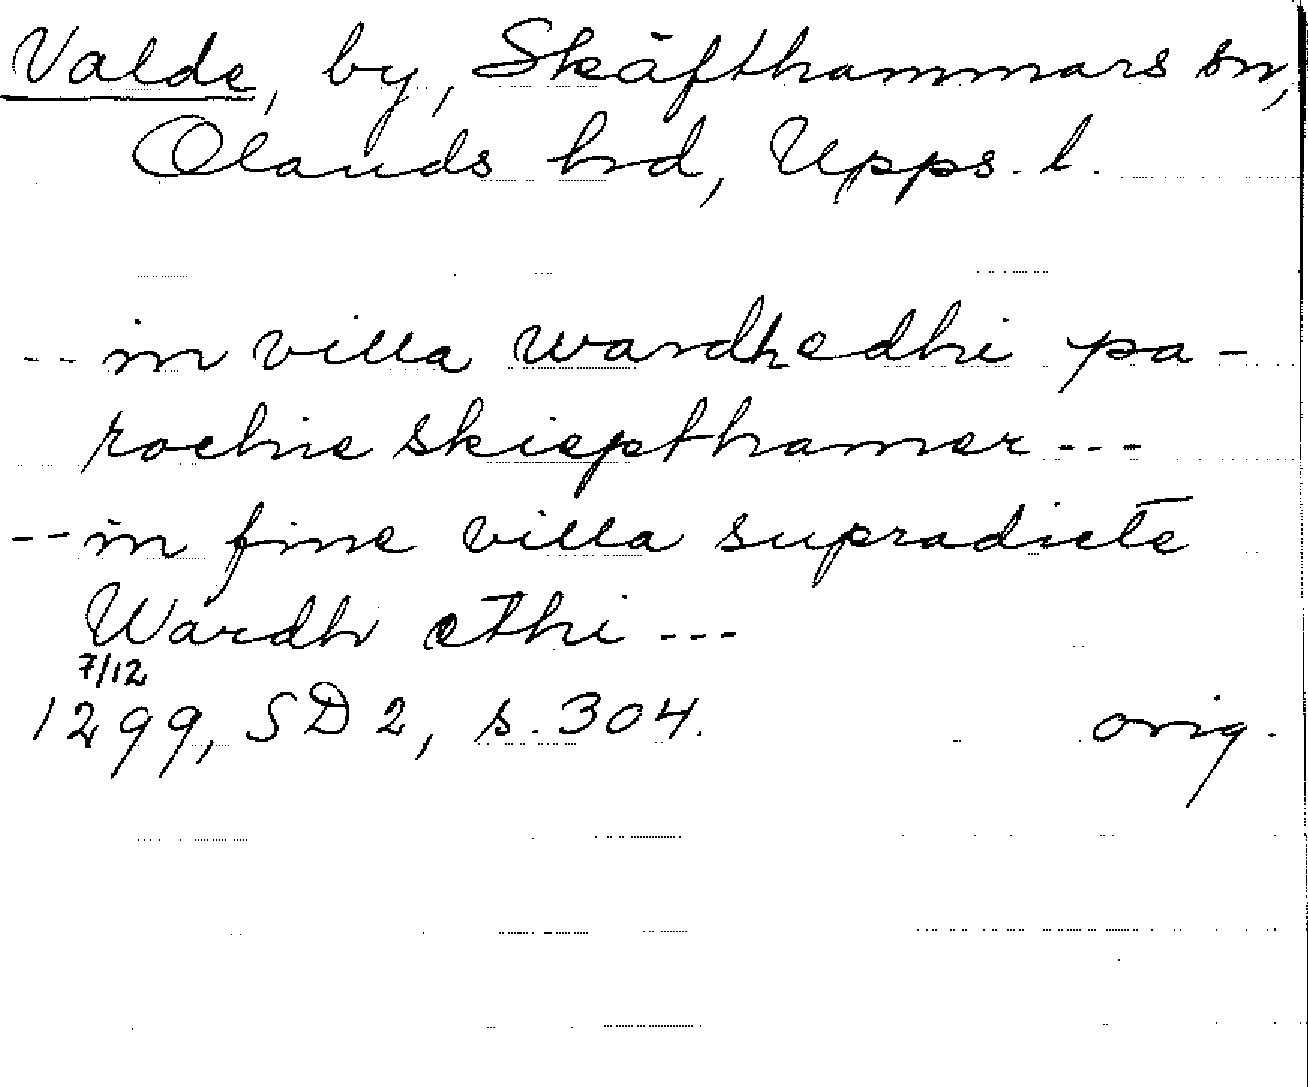 Valde, by, Skäfthammars sn,
Olands hd, Upps. l.
-- in villa wardhedhi pa-
rochie skiepthamer ---
-- in fine villa supradictē
Wardh ethi ---
7/12
1299, SD 2, s. 304. orig.